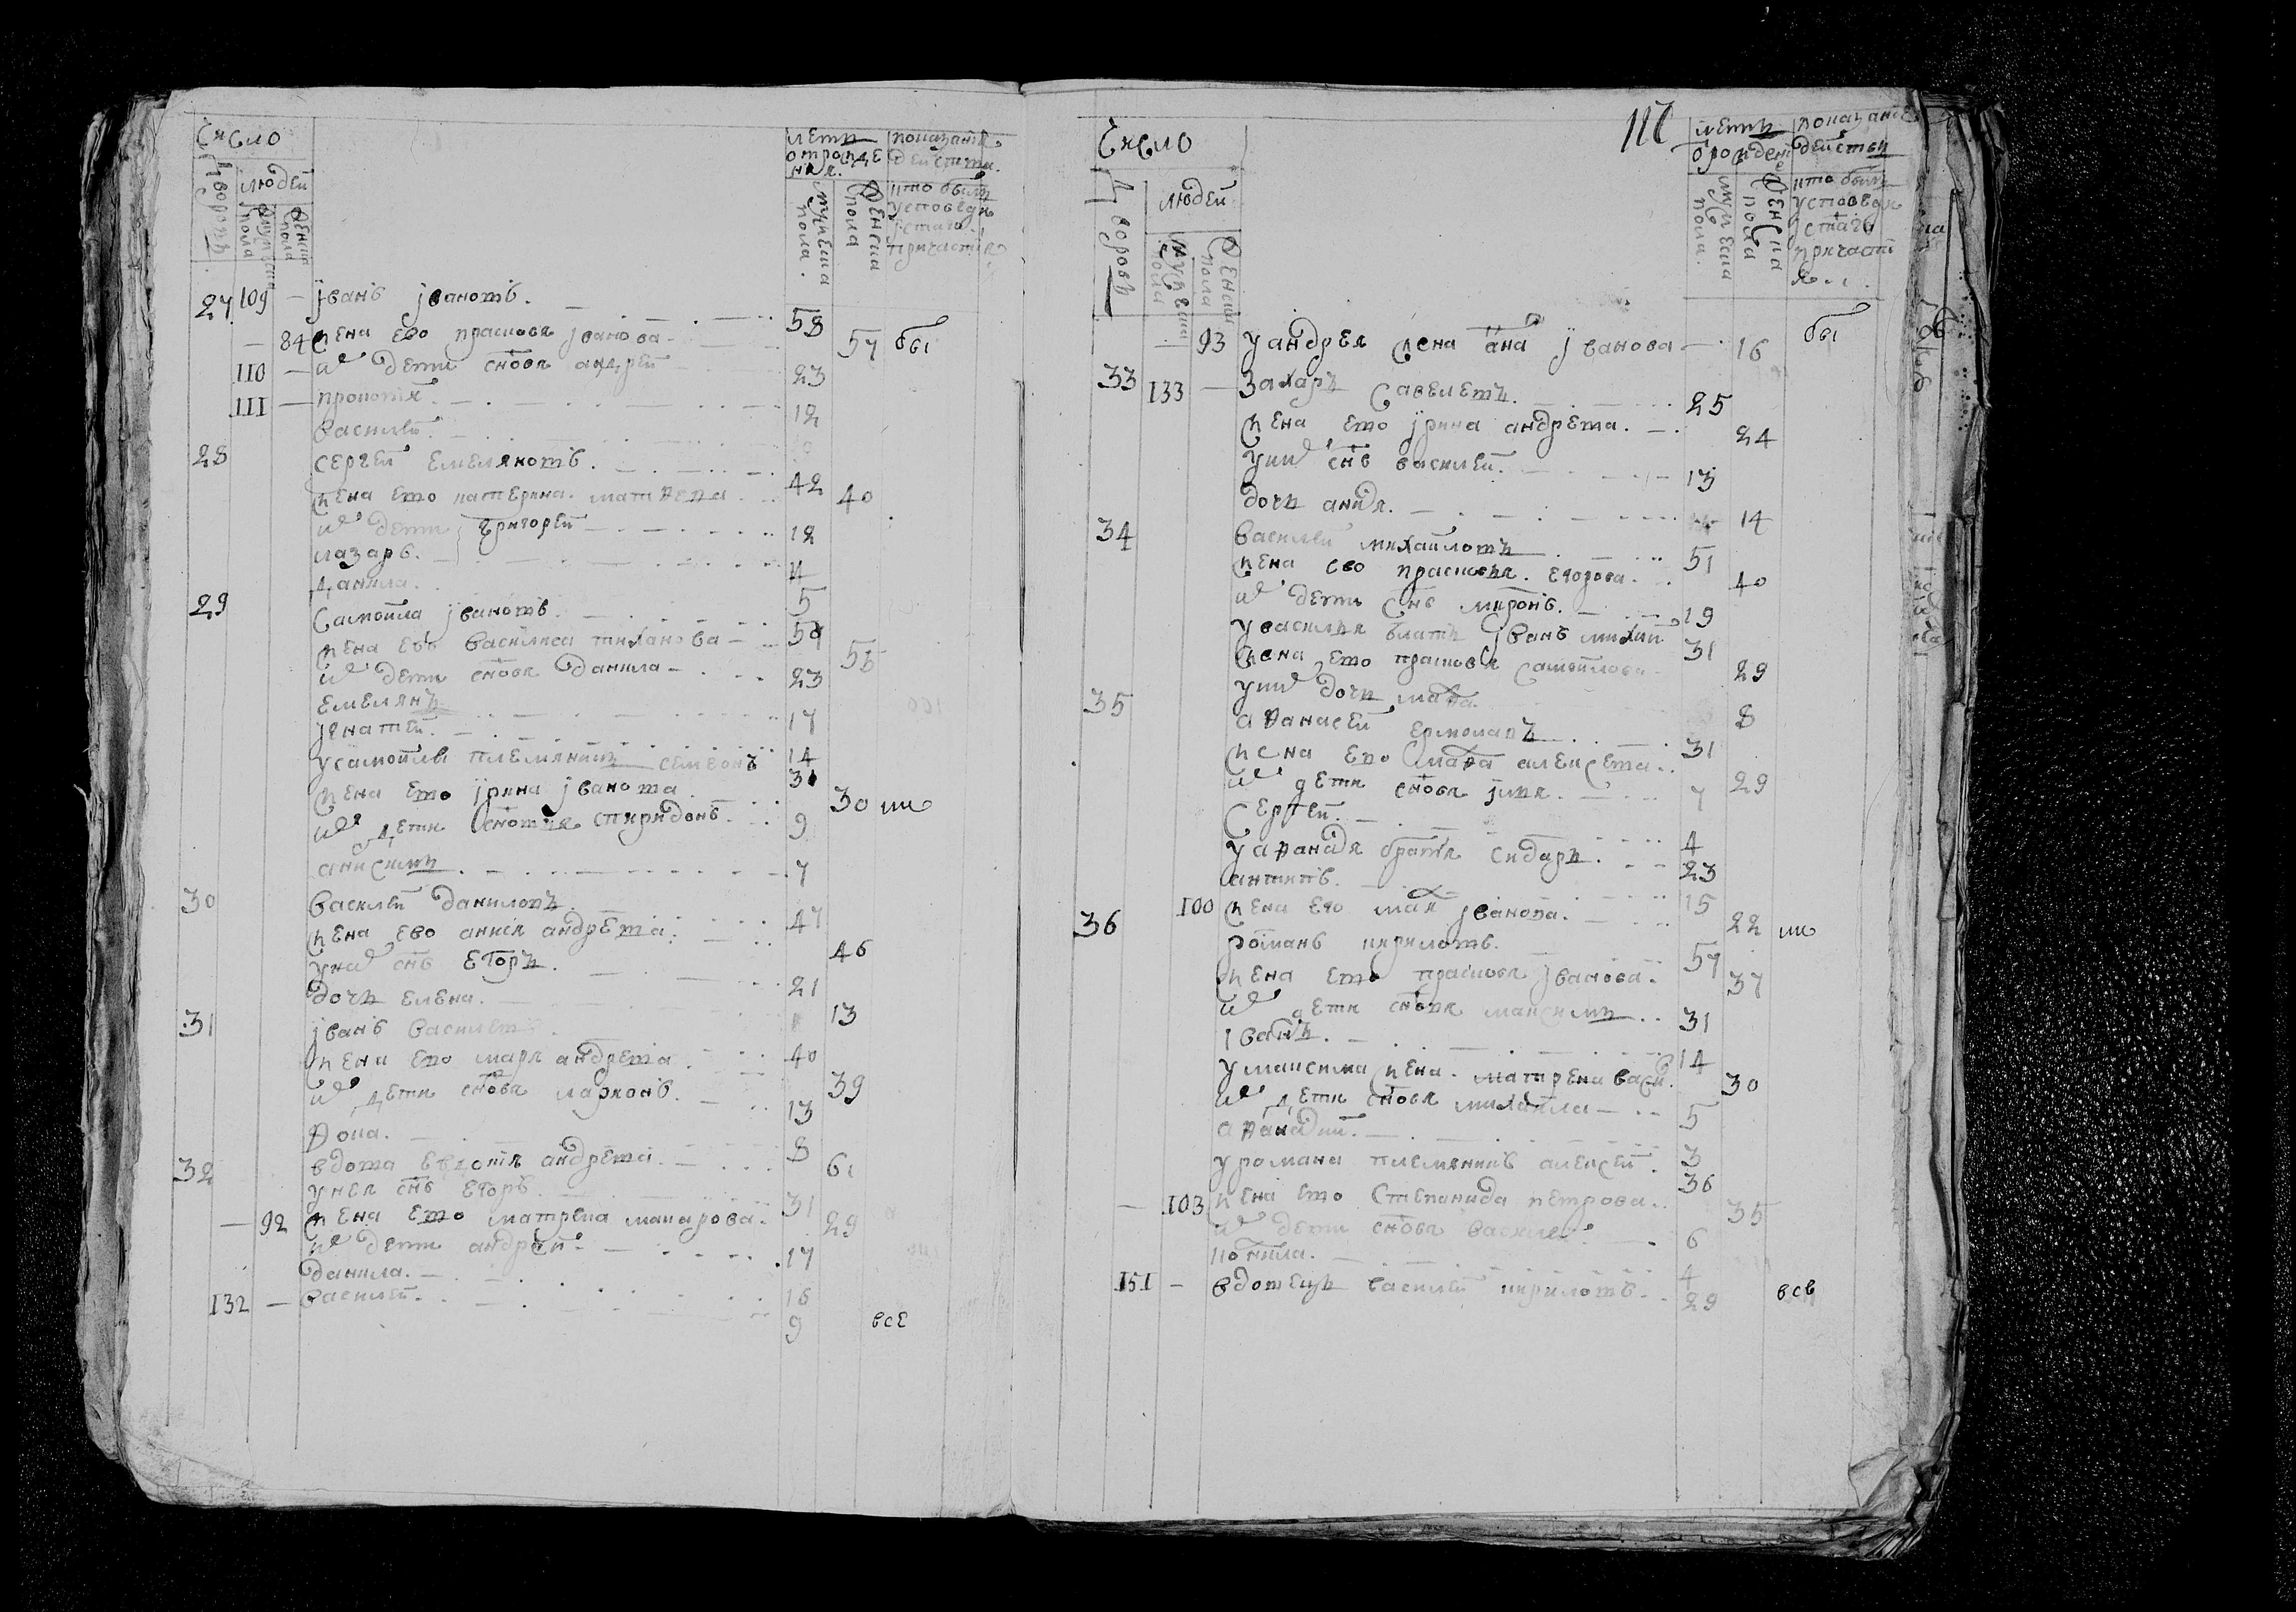 Число
дворовъ
людей
мужеска пола
женска пола
лета от рожде ния.
мужеска пола.
женска пола
показание действа.
кто былъ у исповеди и с таго причастия
27 109 — Iванъ Iвановъ. 58
— 84 жена ево прасковя Iванова 57 бы
110 — их дети сновя андрей 23
111 — прокофей. 12
василей.
28 сергей емеляновъ. 42
жена ево катерина. матвева 40
их дети григорей 12
лазарь.
данила. 5
29 самойла Iвановъ. 59
жена ево василиса тиханова 55
их дети сновя данила 23
емелянъ 17
Iгнатей. 14
у самойлы племянникъ семеонъ 31
жена ево Iрина Iванова 30 ми
их дети сновя спиридонъ. 9
анисимъ 7
30 василей даниловъ. 47
жена ево анися андрева. 46
у них снъ егоръ. 21
дочь елена. 13
31 Iванъ васильевъ. 40
жена ево маря андрева 39
их дети сновя ларионъ. 13
фока. 8
32 вдова евдотя андрева 61
у нея снъ егоръ. 31
— 92 жена ево матрена макарова. 29
их дети андрей 17
данила. 16
132 — василей. 9 все
117
Число
дворовъ
людей
мужеска пола
женска пола
летъ от рожден
мужеска пола.
женска пола
показание действъ
кто былъ у исповеди и с таго причасти я.
— 93 у андрея жена ана Iванова 16 бы
33 133 — Захаръ Савелевъ. 25
жена ево Iрина андрева. 24
у них снъ василей. 13
дочь 14
34 василей михайловъ 51
жена ево прасковя. егорова. 40
их дети снъ миронъ. 19
у василья братъ Iванъ михай 31
жена ево прасковя самойлова 29
у них дочь мафа 8
35 афанасей ермолаевъ 31
жена ево мафа алексева. 29
их дети сновя Iлия. 7
Сергей. 4
у афанася братя сидаръ. 23
антипъ. 15
100 жена ево маря Iванова. 22 ми
36 романъ кириловъ. 57
жена ево прасковя Iванова. 37
их дети сновя максимъ 31
Iванъ. 14
у максима жена. матрена васи. 30
их дети сновя михайла 5
3
у романа племянникъ алексей. 36
— 103 жена ево Степанида петрова. 35
их дети сновя василей 6
4
151 — вдовецъ василей кириловъ. 29 все